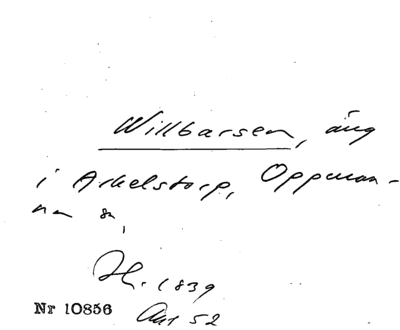 Willbarsen, äng
i Arkelstorp, Oppman-
na sn,
H. 1839
Nr 10856
Akt 52